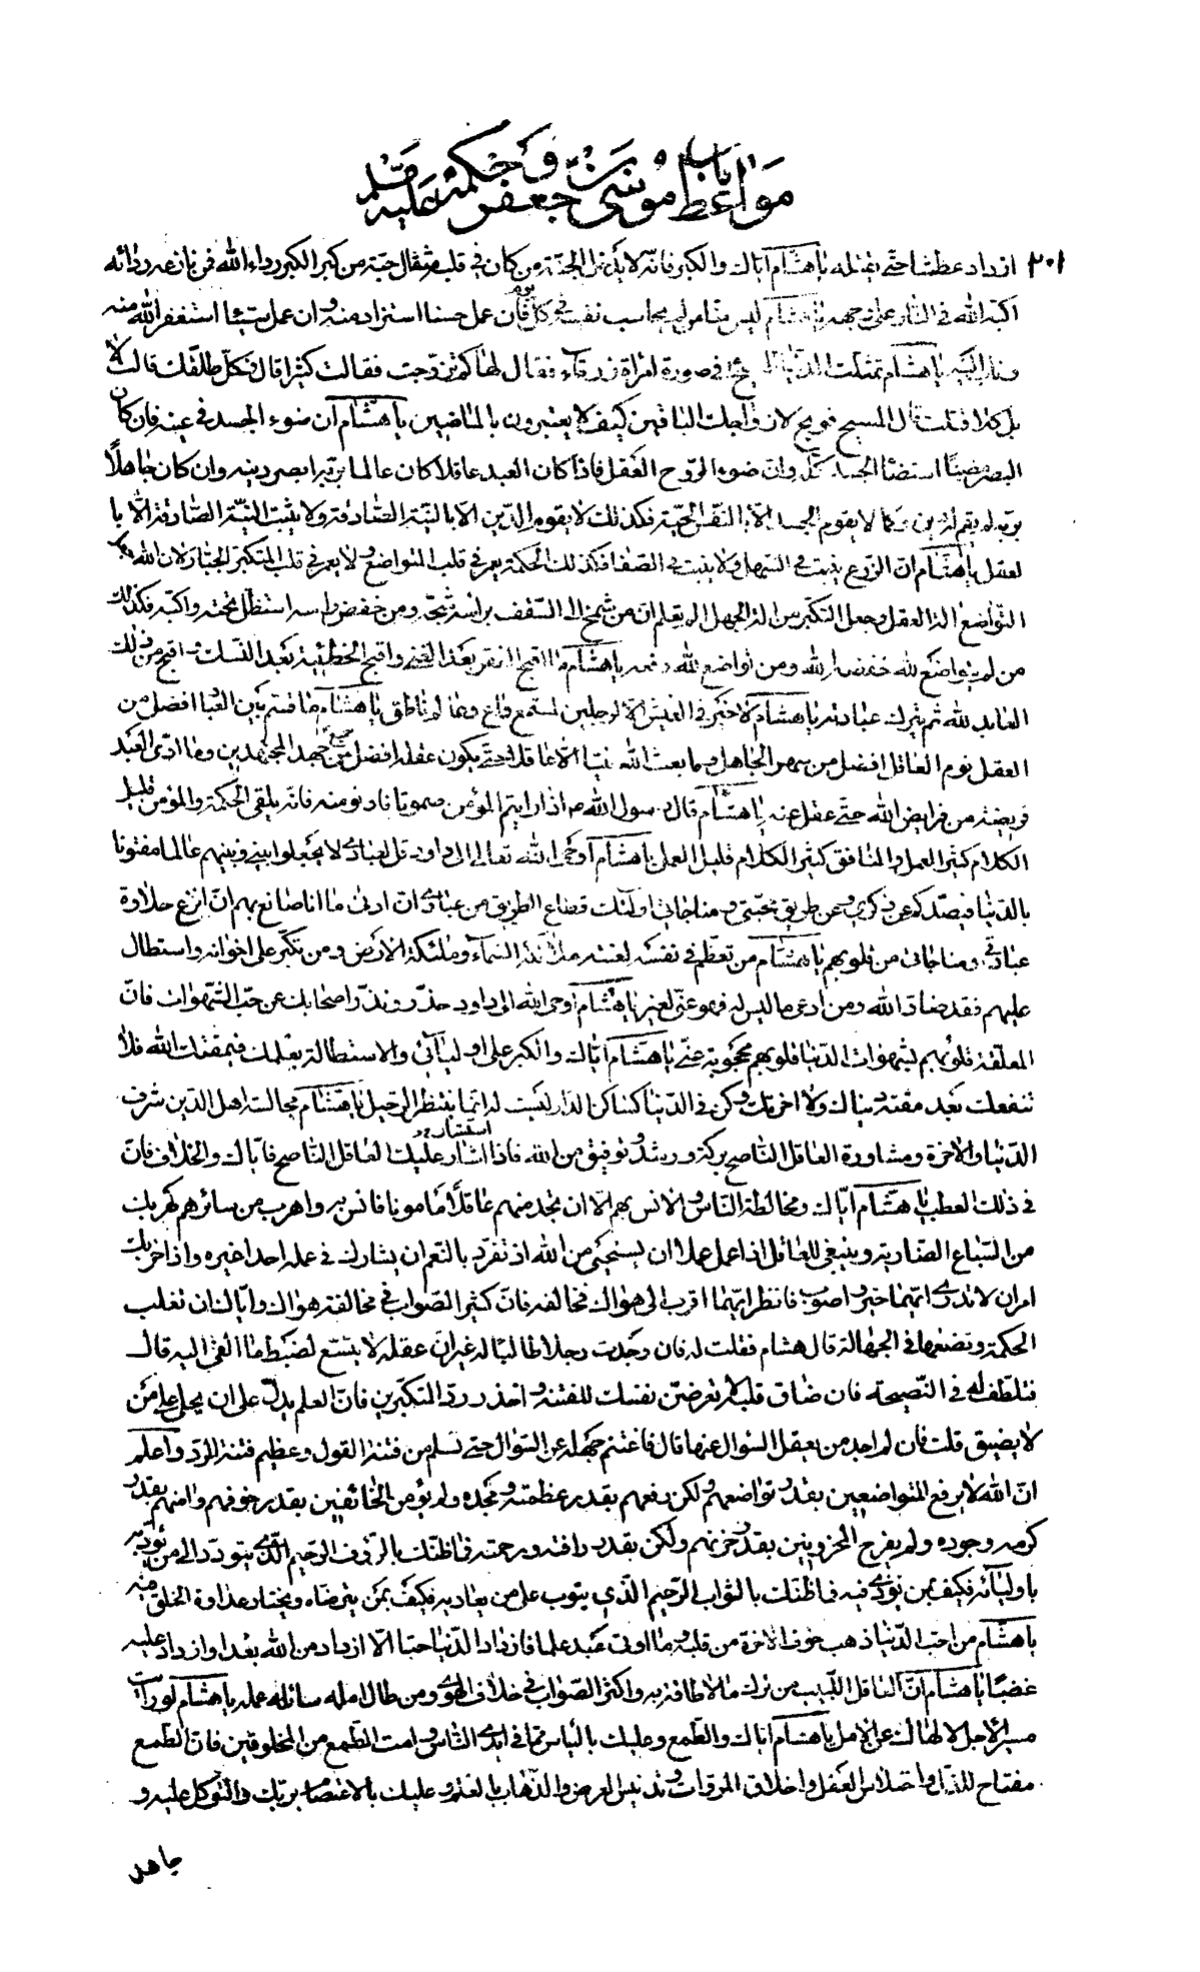 باب
مواعظ موسى بن جعفر وحكمه عليه السلم
٣٠١ ازداد عطشا حتى يقتله يا هشام اياك والكبر فانه لا يدخل الجنة من كان في قلبه مثقال حبة من كبر الكبر رداء الله فمن نازعه ردائه
اكبه الله في النار على وجهه يا هشام ليس منا من لم يحاسب نفسه في كل يوم فان عمل حسنا استزاد منه وان عمل سيئا استغفر الله منه
وتاب اليه يا هشام تمثلت الدنيا للمسيح في صورة امراة زرقاء فقال لها كم تزوجت فقالت كثيرا قال فكل طلقك قالت لا
بل كلا قتلت قال المسيح فويح لازواجك الباقين كيف لا يعتبرون بالماضين يا هشام ان ضوء الجسد في عينه فان كان
البصر مضيئا استضاء الجسد كله وان ضوء الروح العقل فاذا كان العبد عاقلا كان عالما بربه ابصر دينه وان كان جاهلا
بربه لم يقم له دين وكما لا يقوم الجسد الا بالنفس الحية فكذلك لا يقوم الدين الا بالنية الصادقة ولا يثبت النية الصادقة الا با
لعقل يا هشام ان الزرع ينبت في السهل ولا ينبت في الصفا فكذلك الحكمة يعمر في قلب المتواضع ولا يعمر في قلب المتكبر الجبار لان الله جعل
التواضع الة العقل وجعل التكبر من الة الجهل الم تعلم ان من شمخ الى السقف براسه شجه ومن خفض راسه استظل تحته واكنه فكذلك
من لم يتواضع لله خفضه الله ومن تواضع لله رفعه يا هشام ما اقبح الفقر بعد الغنى واقبح الخطيئة بعد النسك واقبح من ذلك
العابد لله ثم يترك عبادته يا هشام لا خير في العيش الا لرجلين لمستمع واع وعالم ناطق يا هشام ما قسم بين العباد افضل من
العقل نوم العاقل افضل من سهر الجاهل وما بعث الله نبيا الا عاقلا حتى يكون عقله افضل من جميع جهد المجتهدين وما ادى العبد
فريضة من فرايض الله حتى عقل عنه يا هشام قال رسول الله ص اذا رايتم المؤمن صموتا فادنو منه فانه يلقى الحكمة والمؤمن قليل
الكلام كثير العمل والمنافق كثير الكلام قليل العمل يا هشام اوحى الله تعالى الى داود قل لعبادي لا يجعلوا بيني وبينهم عالما مفتونا
بالدنيا فيصدكم عن ذكري وعن طريق محبتي ومناجاتي اولئك قطاع الطريق من عبادي ان ادنى ما انا صانع بهم ان انزع حلاوة
عبادتي ومناجاتي من قلوبهم يا هشام من تعظم في نفسه لعنته ملائكة السماء وملئكة الارض ومن تكبر على اخوانه واستطال
عليهم فقد ضاد الله ومن ادعى ما ليس له فهو عنى لغيره يا هشام اوحى الله الى داود حذر ونذر اصحابك عن حب الشهوات فان
المعلقة قلوبهم بشهوات الدنيا قلوبهم محجوبة عني يا هشام اياك والكبر على اوليائي والاستطالة بعلمك فيمقتك الله فلا
تنفعك بعد مقته دنياك ولا اخرتك وكن في الدنيا كساكن الدار ليست له انما ينتظر الرحيل يا هشام مجالسة اهل الدين شرف
الدنيا والاخرة ومشاورة العاقل الناصح بركة ورشد وتوفيق من الله فاذا اشار عليك العاقل الناصح فاياك والخلاف فان
في ذلك العطب يا هشام اياك ومخالطة الناس والانس بهم الا ان تجد منهم عاقلا مامونا فانس به واهرب من سائرهم كهربك
من السباع الضارية وينبغي للعاقل اذا عمل عملا ان يستحيي من الله اذ تفرد بالنعم ان يشارك في عمله احدا غيره واذا حزبك
امران لا تدري ايهما خير واصوب فانظر ايهما اقرب الى هواك فخالفه فان كثير الصواب في مخالفة هواك واياك ان تغلب
الحكمة وتضعها في الجهالة قال هشام فقلت له فان وجدت رجلا طالبا له غير ان عقله لا يتسع لضبط ما القي اليه قال
فتلطف له في النصيحة فان ضاق قلبه فلا تعرضن نفسك للفتنة واحذر رد المتكبرين فان العلم يدل على ان يحمل على من
لا يضيق قلت فان لم اجد من يعقل السؤال عنها قال فاغتنم جهله عن السؤال حتى تسلم من فتنة القول وعظيم فتنة الرد واعلم
ان الله لا يرفع المتواضعين بقدر تواضعهم ولكن رفعهم بقدر عظمته ومجده ولم يؤمن الخائفين بقدر خوفهم وامنهم بقدر
كرمه وجوده ولم يفرح المحزونين بقدر حزنهم ولكن بقدر رافته ورحمته فما ظنك بالرؤف الرحيم الذي يتودد الى من يؤذيه
باوليائه فكيف بمن يؤذى فيه فما ظنك بالتواب الرحيم الذي يتوب على من يعاديه فكيف بمن يترضاه ويختار عداوة الخلق فيه
يا هشام من احب الدنيا ذهب خوف الاخرة من قلبه وما اوتى عبد علما فازداد الدنيا حبا الا ازداد من الله بعدا وازداد عليه
غضبا يا هشام ان العاقل اللبيب من ترك ما لا طاقة به واكثر الصواب في خلاف الهوى ومن طال امله ساء عمله يا هشام لو رايت
مسير الاجل لالهاك عن الامل يا هشام اياك والطمع وعليك بالياس مما في ايدي الناس وامت الطمع من المخلوقين فان الطمع
مفتاح للذل واختلاس العقل واخلاق المروات وتدنيس العرض والذهاب بالعلم وعليك بالاعتصام بربك والتوكل عليه و
جاهد